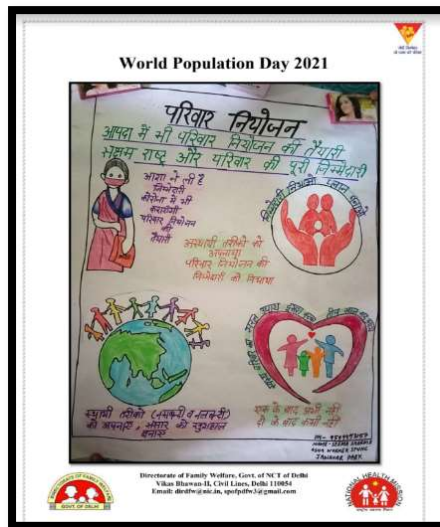 World Population Day 2021
परिवार नियोजन
आपदा में भी परिवार नियोजन की तैयारी
सक्षम राष्ट्र और परिवार की पूरी जिम्मेदारी
आशा ने ली है
जिम्मेदारी
कोरोना में भी
करायेगी
परिवार नियोजन
की
तैयारी
जिम्मेदारी निभाओ प्लान बनाओ
अस्थायी तरीको को
अपनाया
परिवार नियोजन की
जिम्मेदारी को निभाया
स्थायी तरीको (नसबंदी व नलबंदी)
को अपनाइए, संसार को खुशहाल
बनाइए
एक के बाद अभी नहीं
दो के बाद कभी नहीं
Directorate of Family Welfare, Govt. of NCT of Delhi
Vikas Bhawan-II, Civil Lines, Delhi 110054
Email: dirdfw@nic.in, spofpdfw3@gmail.com
DIRECTORATE OF FAMILY WELFARE
GOVT. OF DELHI
NATIONAL HEALTH MISSION